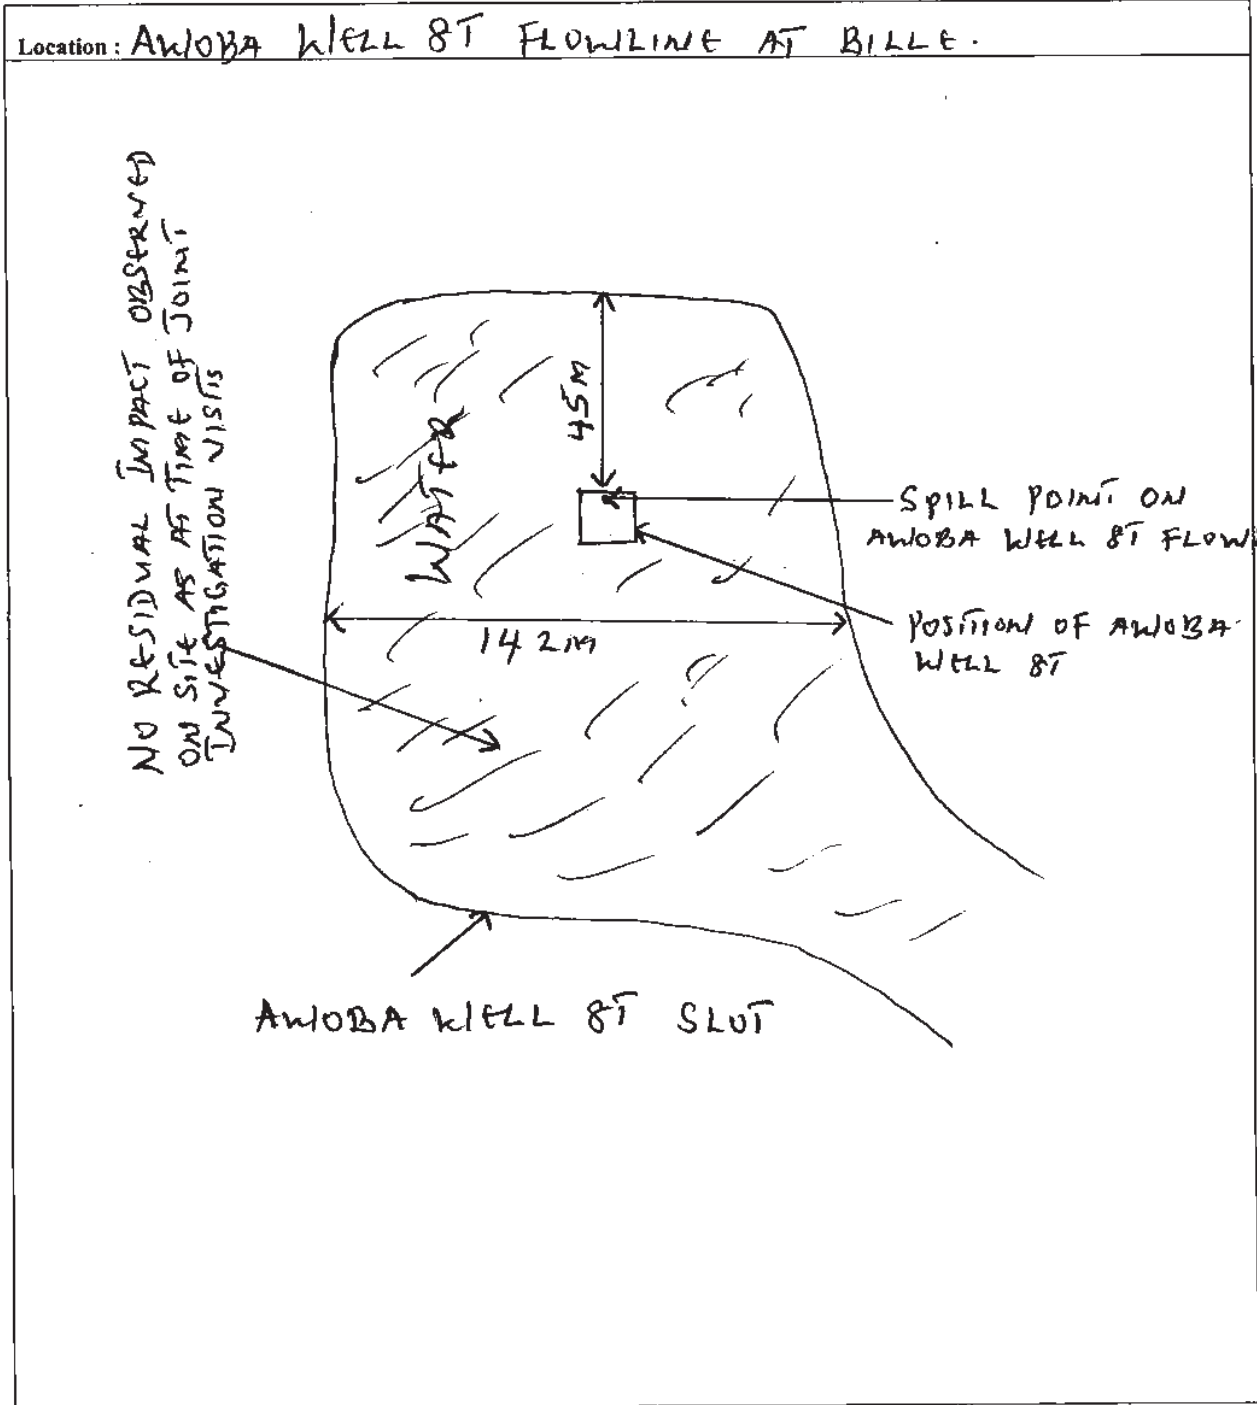 Location : AWOBA WELL 8T FLOWLINE AT BILLE.
NO RESIDUAL IMPACT OBSERVED
ON SITE AS AT TIME OF JOINT
INVESTIGATION VISIT
45M
WATER
SPILL POINT ON
AWOBA WELL 8T FLOW
142M
POSITION OF AWOBA
WELL 8T
AWOBA WELL 8T SLOT